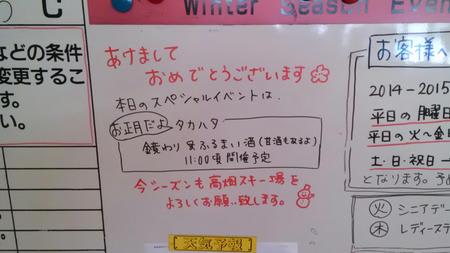 C
Winter Season Even
などの条件
変更するこ
す。
い。
あけまして
おめでとうございます
本日のスペシャルイベントは、
お正月だよ タカハタ
鏡わり&ふるまい酒(甘酒もあるよ)
11:00頃 開催予定
今シーズンも高畑スキー場を
よろしくお願い致します。
天気予報
お客様へ
2014-2015
平日の月曜日
平日の火~金
土・日・祝日→
となります。予め
火 シニアデー
木 レディースデ